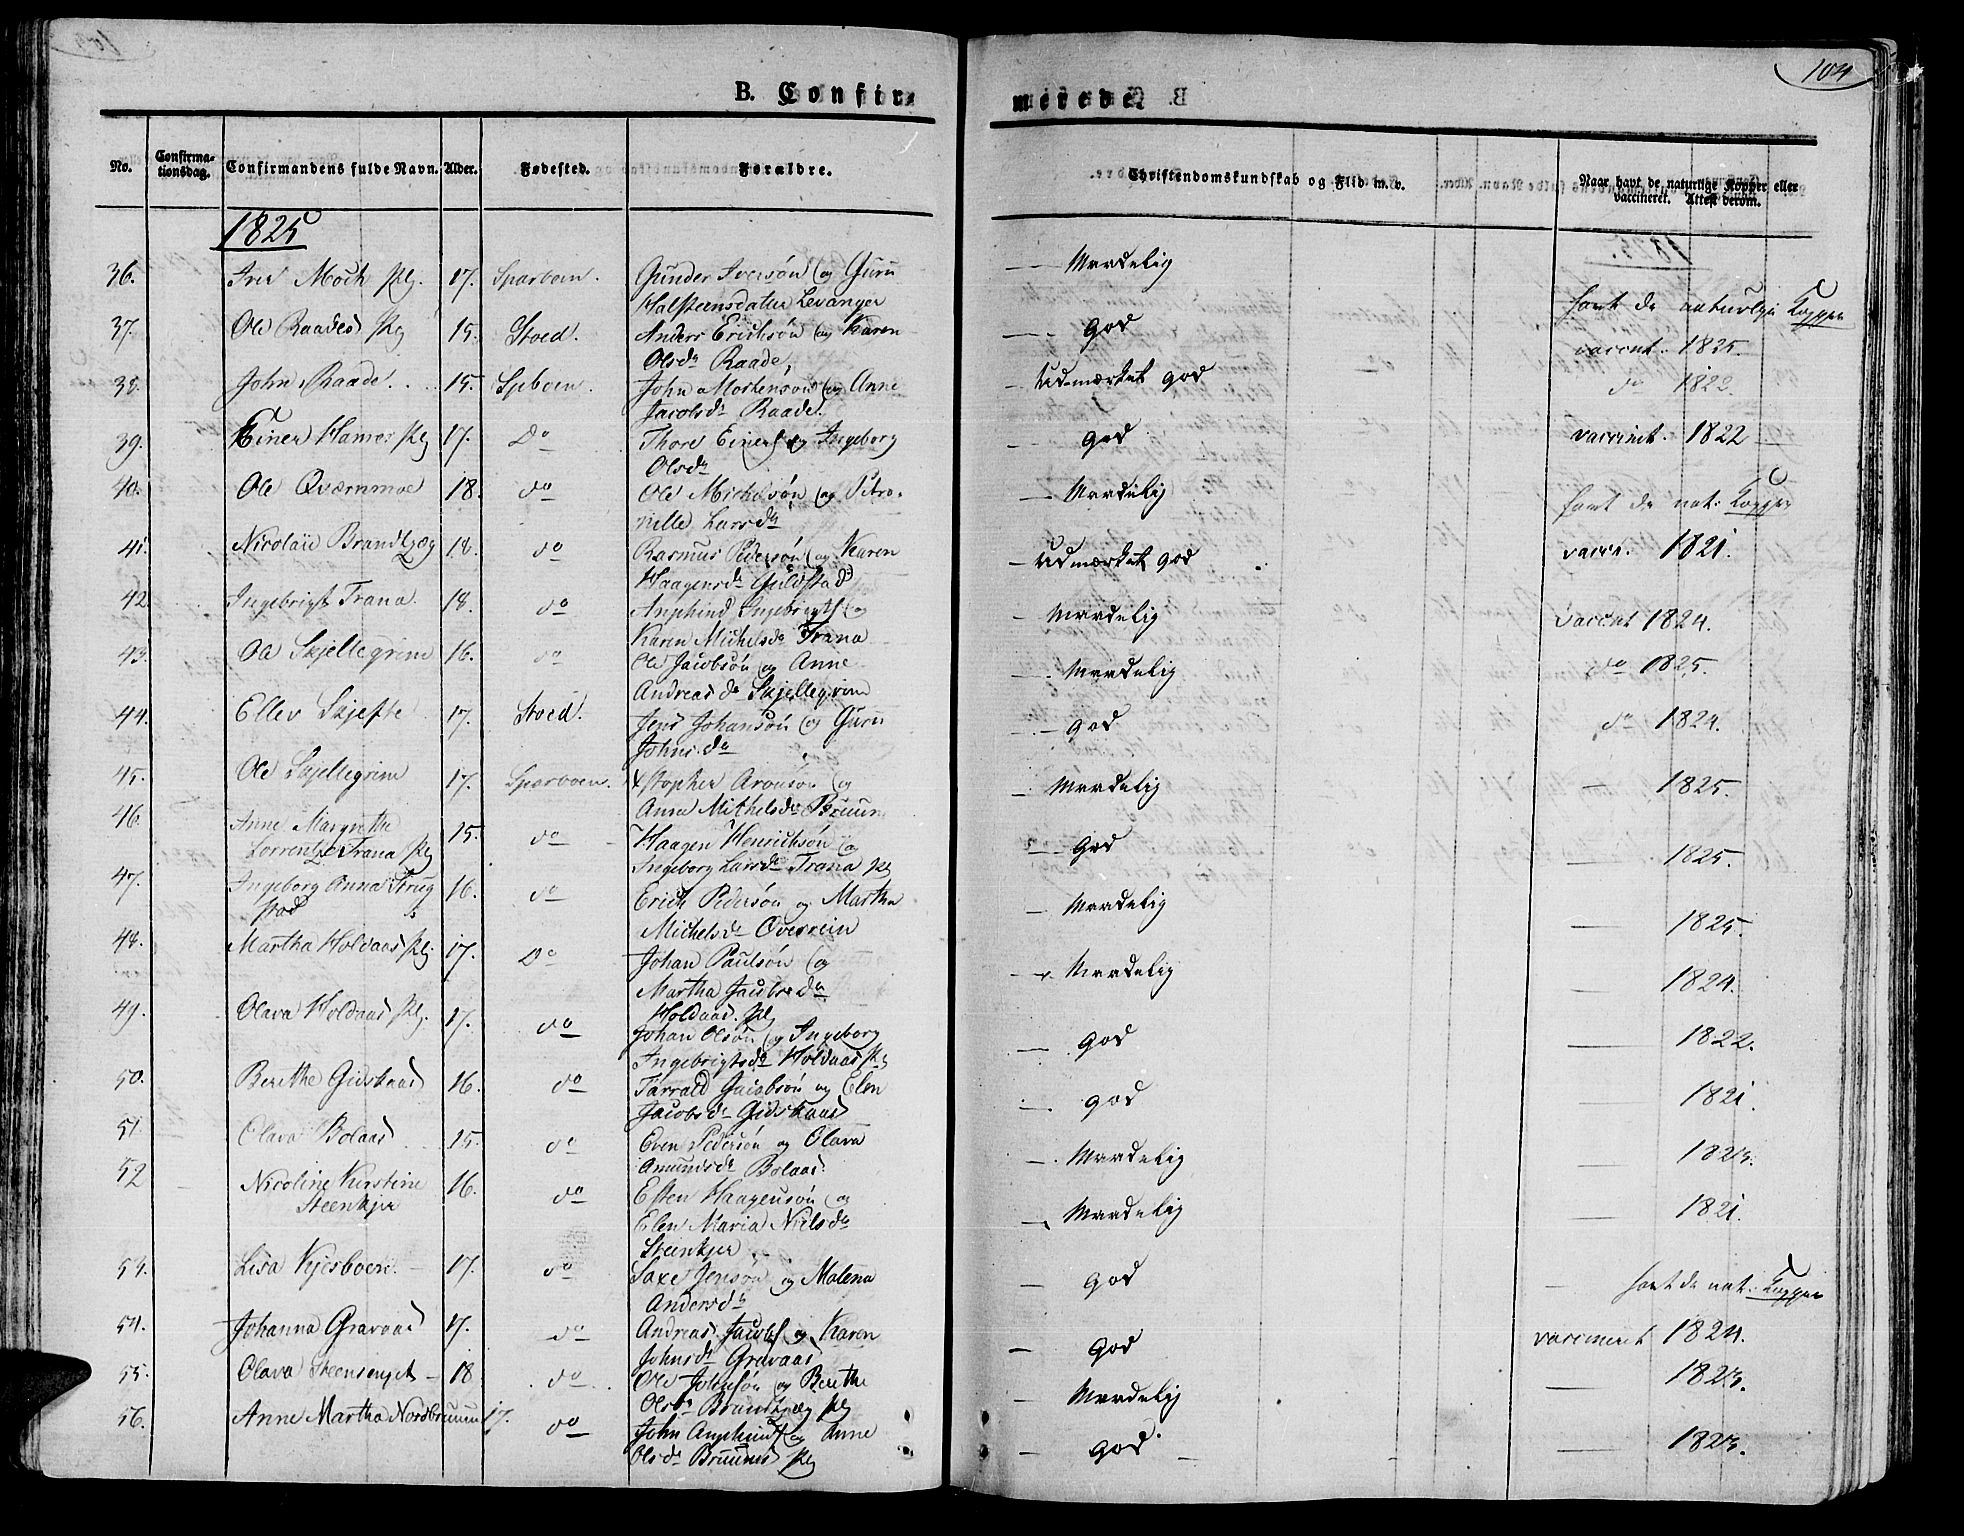 104
B. Confirmerede.
No. Confirmationsdag. Confirmandens fulde Navn. Alder. Fødested. Forældre. Christendomskundskab og Flid m. v. Naar havt de naturlige Kopper eller vaccineret. Attest derom.
1825
36. Iver Moch Plg. 17. Sparboen. Gunder Iversøn og Guru Halsteensdatter Levanger — Maadelig havt de naturlige Kopper
37. Ole Raades Plg 15. Stoed. Anders Erichsøn og Karen Olsdr Raade, — God vaccnt. 1825.
38. John Raade. 15. Spboen. John Mortensøn og Anne Jacobsdr Raade. — Udmærket god do 1822
39. Einer Hamer Plg 17. Do Thore Einers og Ingeborg Olsdr — God vaccinet. 1822
40. Ole Qværnmoe 18. do Ole Michelsøn og Petronille Larsdr — Maadelig havt de nat: Kopper
41. Nicolaie Brandtzæg 18. do Rasmus Pedersøn og Karen Haagensdr Guldstad — Udmærket god vaccr. 1821.
42. Ingebrigt Trana. 18. do Amphind Ingebrigts og Karen Michelsdr Trana — Maadelig Vaccnt 1824.
43. Ole Skjellegrim 16. do Ole Jacobsøn og Anne Andreasdr Skjellegrim — Maadelig do 1825.
44. Ellev Skjefte 17. Stoed. Jens Johansøn og Guru Johns.dr — God do 1824.
45. Ole Skjellegrim 17. Sparboen. Xstopher Aronsøn og Anne Mithelsdr Bruun — Maadelig — 1825.
46. Anne Margrethe Lorrentze Trana Plg 15. do Haagen Henrichsøn og Ingeborg Larsdr Trana Plg — God — 1825.
47. Ingeborg Anna Strugstad 16. do Erich Pedersøn og Martha Michelsdr Overrein — Maadelig — 1825.
48. Martha Holdaas Plg. 17. Do Johan Paulsøn og Martha Jacobsdr Holdaas. Plg — Maadelig — 1824.
49. Olava Holdaas Plg. 17. do Johan Olsøn og Ingeborg Ingebrigtsdr Holdaas Plg — God — 1822.
50. Berethe Gidskaas 16. do Tarrald Jacobsøn og Elen Jacobsdr Gidskaas — God — 1821.
51. Olava Bolaas 15. do Even Pedersøn og Olava Amundsdr Bolaas — Maadelig — 1823.
52 Nicoline Kirstine Steenkjer 16. do Esten Haagensøn og Elen Maria Nielsdr Steenkjer — Maadelig — 1821.
53. Lisa Kjesboen. 17. do Saxe Jensøn og Malena Andersdr — God — havt de nat: Kopper
54. Johanna Gravaas 17. do Andreas Jacobs og Karen Johnsdr Gravaas — God vaccineret 1824.
55. Olava Steensenget 18 do Ole Johnsøn og Berethe Olsdr Brandtzæg Plg — Maadelig — 1823.
56. Anne Martha Nordbruuun 17. do John Amphinds og Anne Olsdr Bruuns Plg — God — 1823.